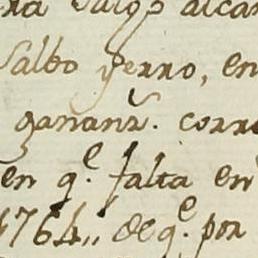 Salbo yerro, en
gananz.ˢ corr
en q.ᵉ falta en
1764,, de q.ᵉ por